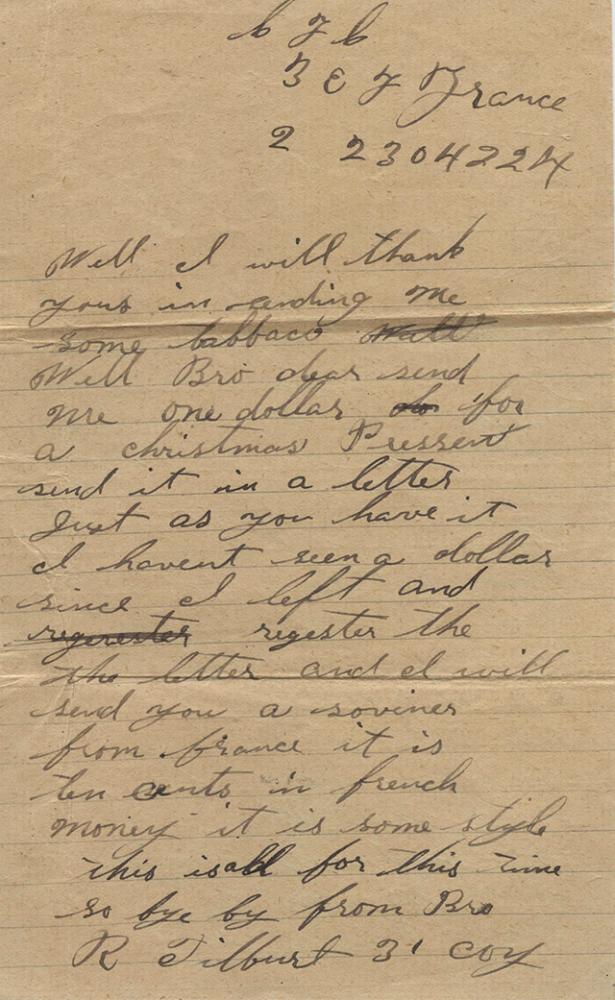 B E F France
2 2304224
Well I will thank
yous in sending me
some tabbaco Well
Well Bro dear send
me one dollar for
a christmas Pressent
send it in a letter
Just as you have it
I havent seen a dollar
since I left and
regerester regester the
the letter and I will
send you a soviner
from france it is
ten cents in french
money it is some style
this is all for this time
so bye by from Bro
R Tilburt 31 coy